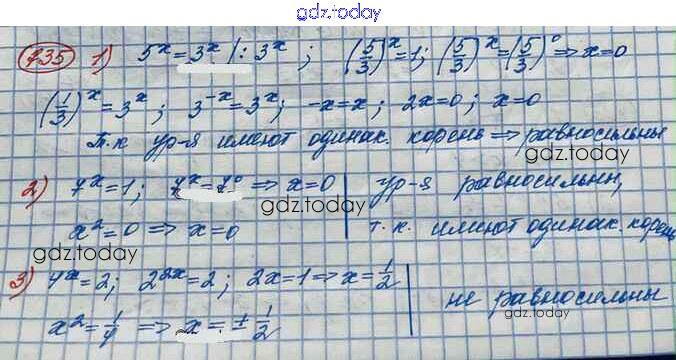 gdz.today
735 1) 5^x = 3^x |: 3^x ; (5/3)^x = 1; (5/3)^x = (5/3)^0 => x=0
(1/3)^x = 3^x ; 3^-x = 3^x; -x=x; 2x=0; x=0
Т.к ур-я имеют одинак. корень => равносильны
gdz.today
2) 7^x=1; 7^x=7^0 => x=0 | ур-я равносильны,
gdz.today
x^2=0 => x=0 | т.к. имеют одинак. корень
gdz.today
3) 4^x=2; 2^2x=2; 2x=1 => x=1/2
не равносильны
x^2=1/4 => x=±1/2
gdz.today